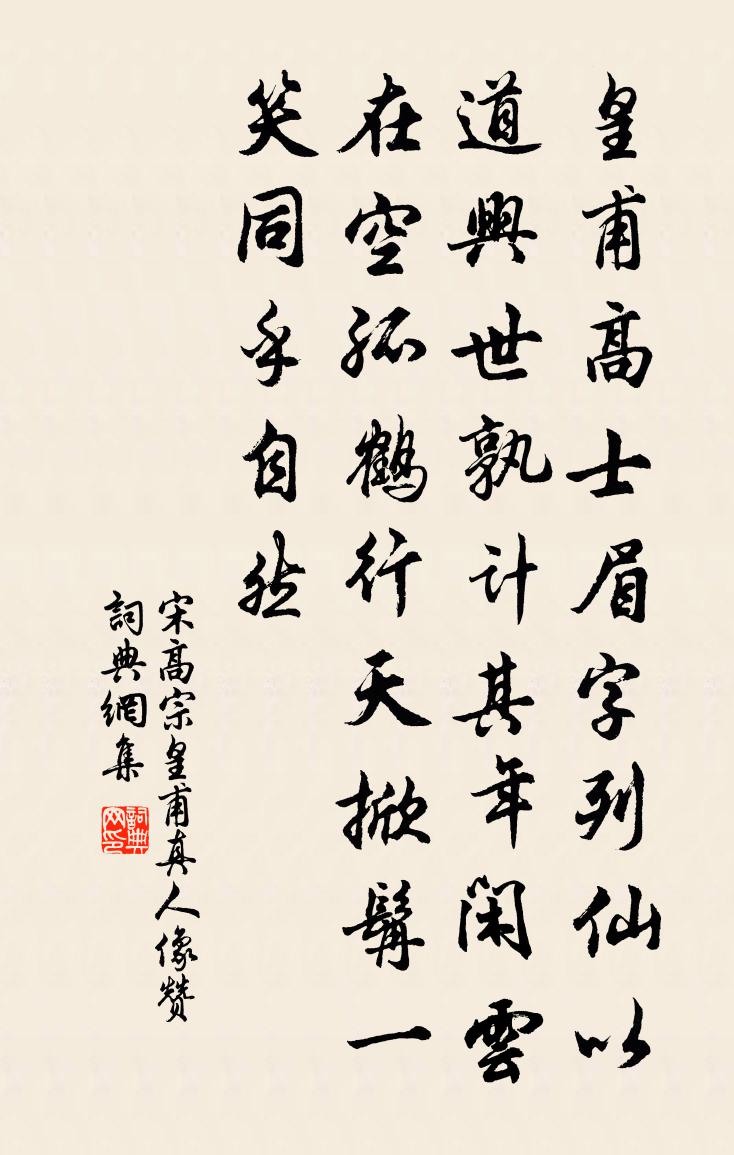 皇甫高士眉宇列仙以
道興世孰計其年閑雲
在空孤鶴行天掀髯一
笑同乎自然
宋高宗皇甫真人像贊
詞典網集
詞典网印